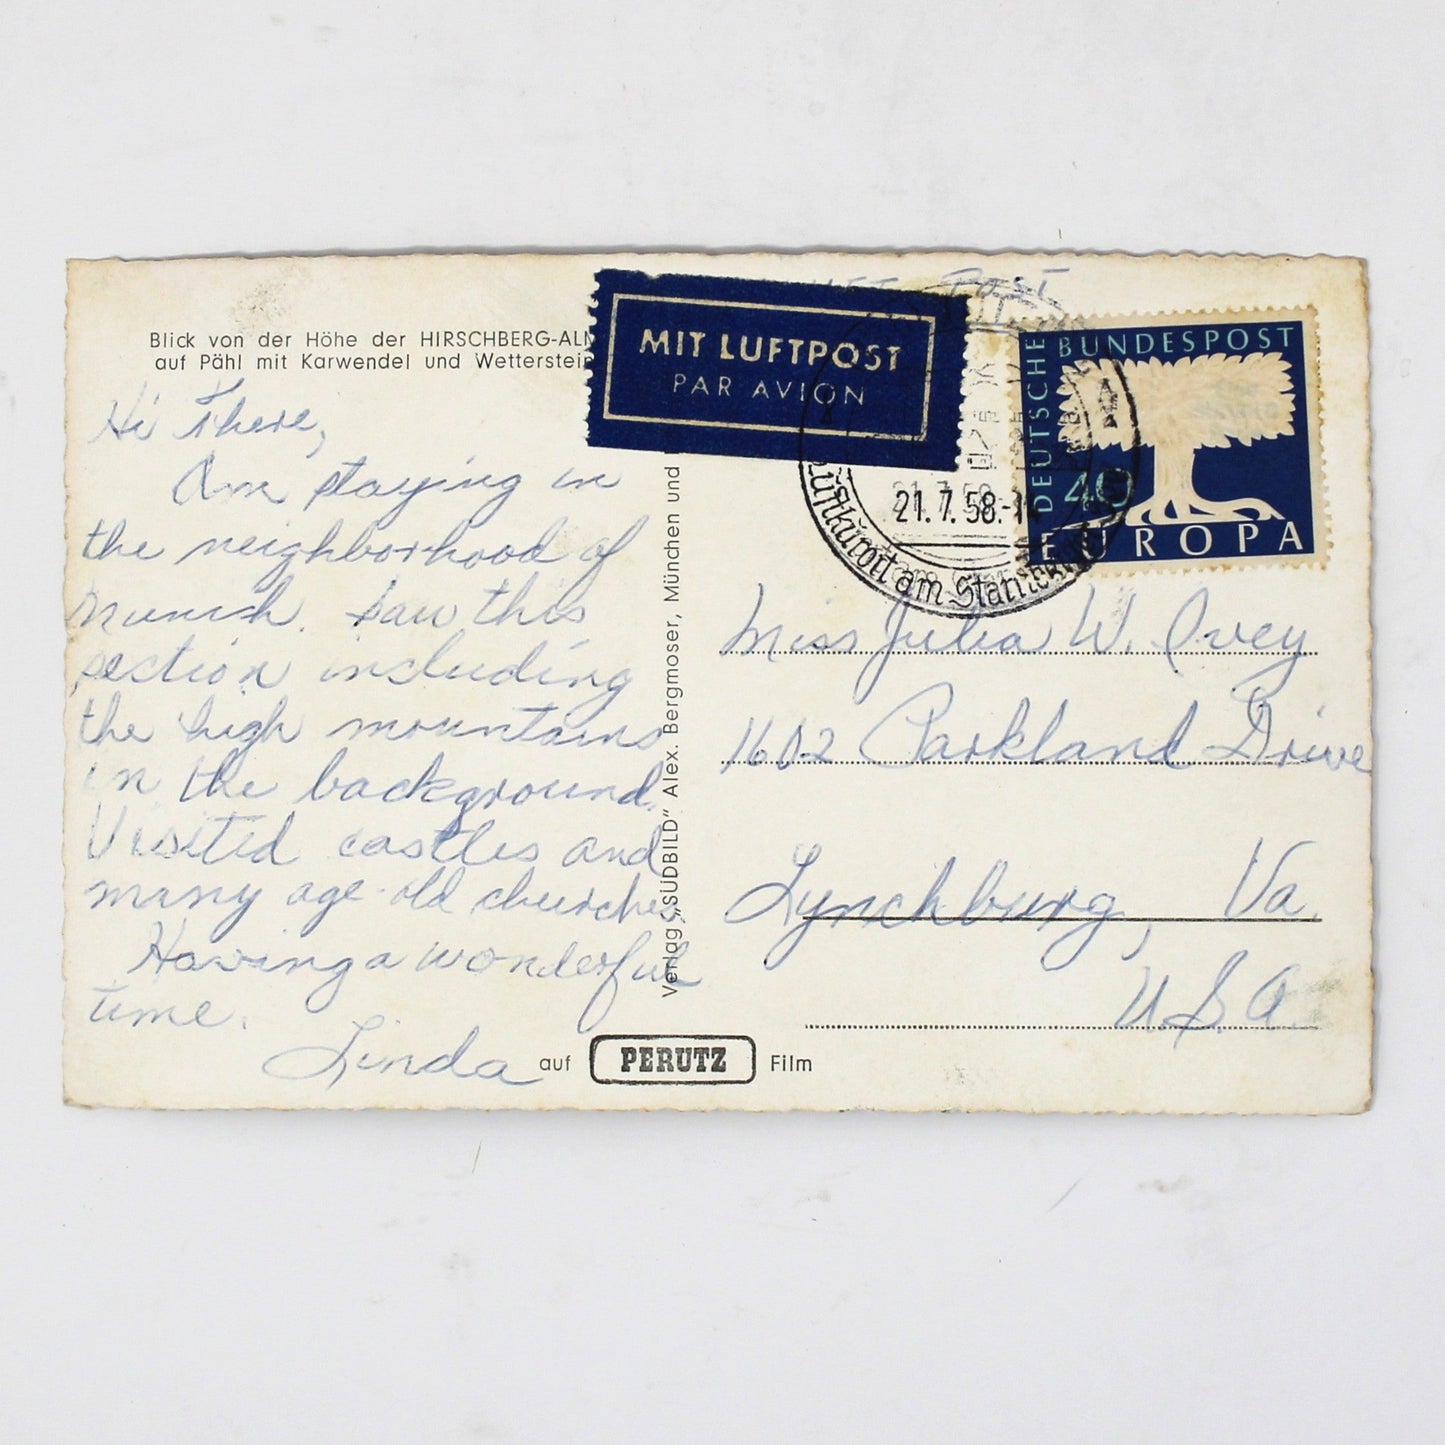 Blick von der Höhe der HIRSCHBERG-ALM
auf Pähl mit Karwendel und Wetterstein
Hi There,
Am staying in
the neighborhood of
Munich. Saw this
section including
the high mountains
in the background.
Visited castles and
many age-old churches.
Having a wonderful
time.
Linda
auf PERUTZ Film
Verlag „SÜDBILD" Alex. Bergmoser, München und
POST
MIT LUFTPOST
PAR AVION
21.7.58.
Luftkurort am Starnberger
DEUTSCHE
BUNDESPOST
40
EUROPA
Miss Julia W. Ivey
1602 Parkland Drive
Lynchburg, Va.
U.S.A.